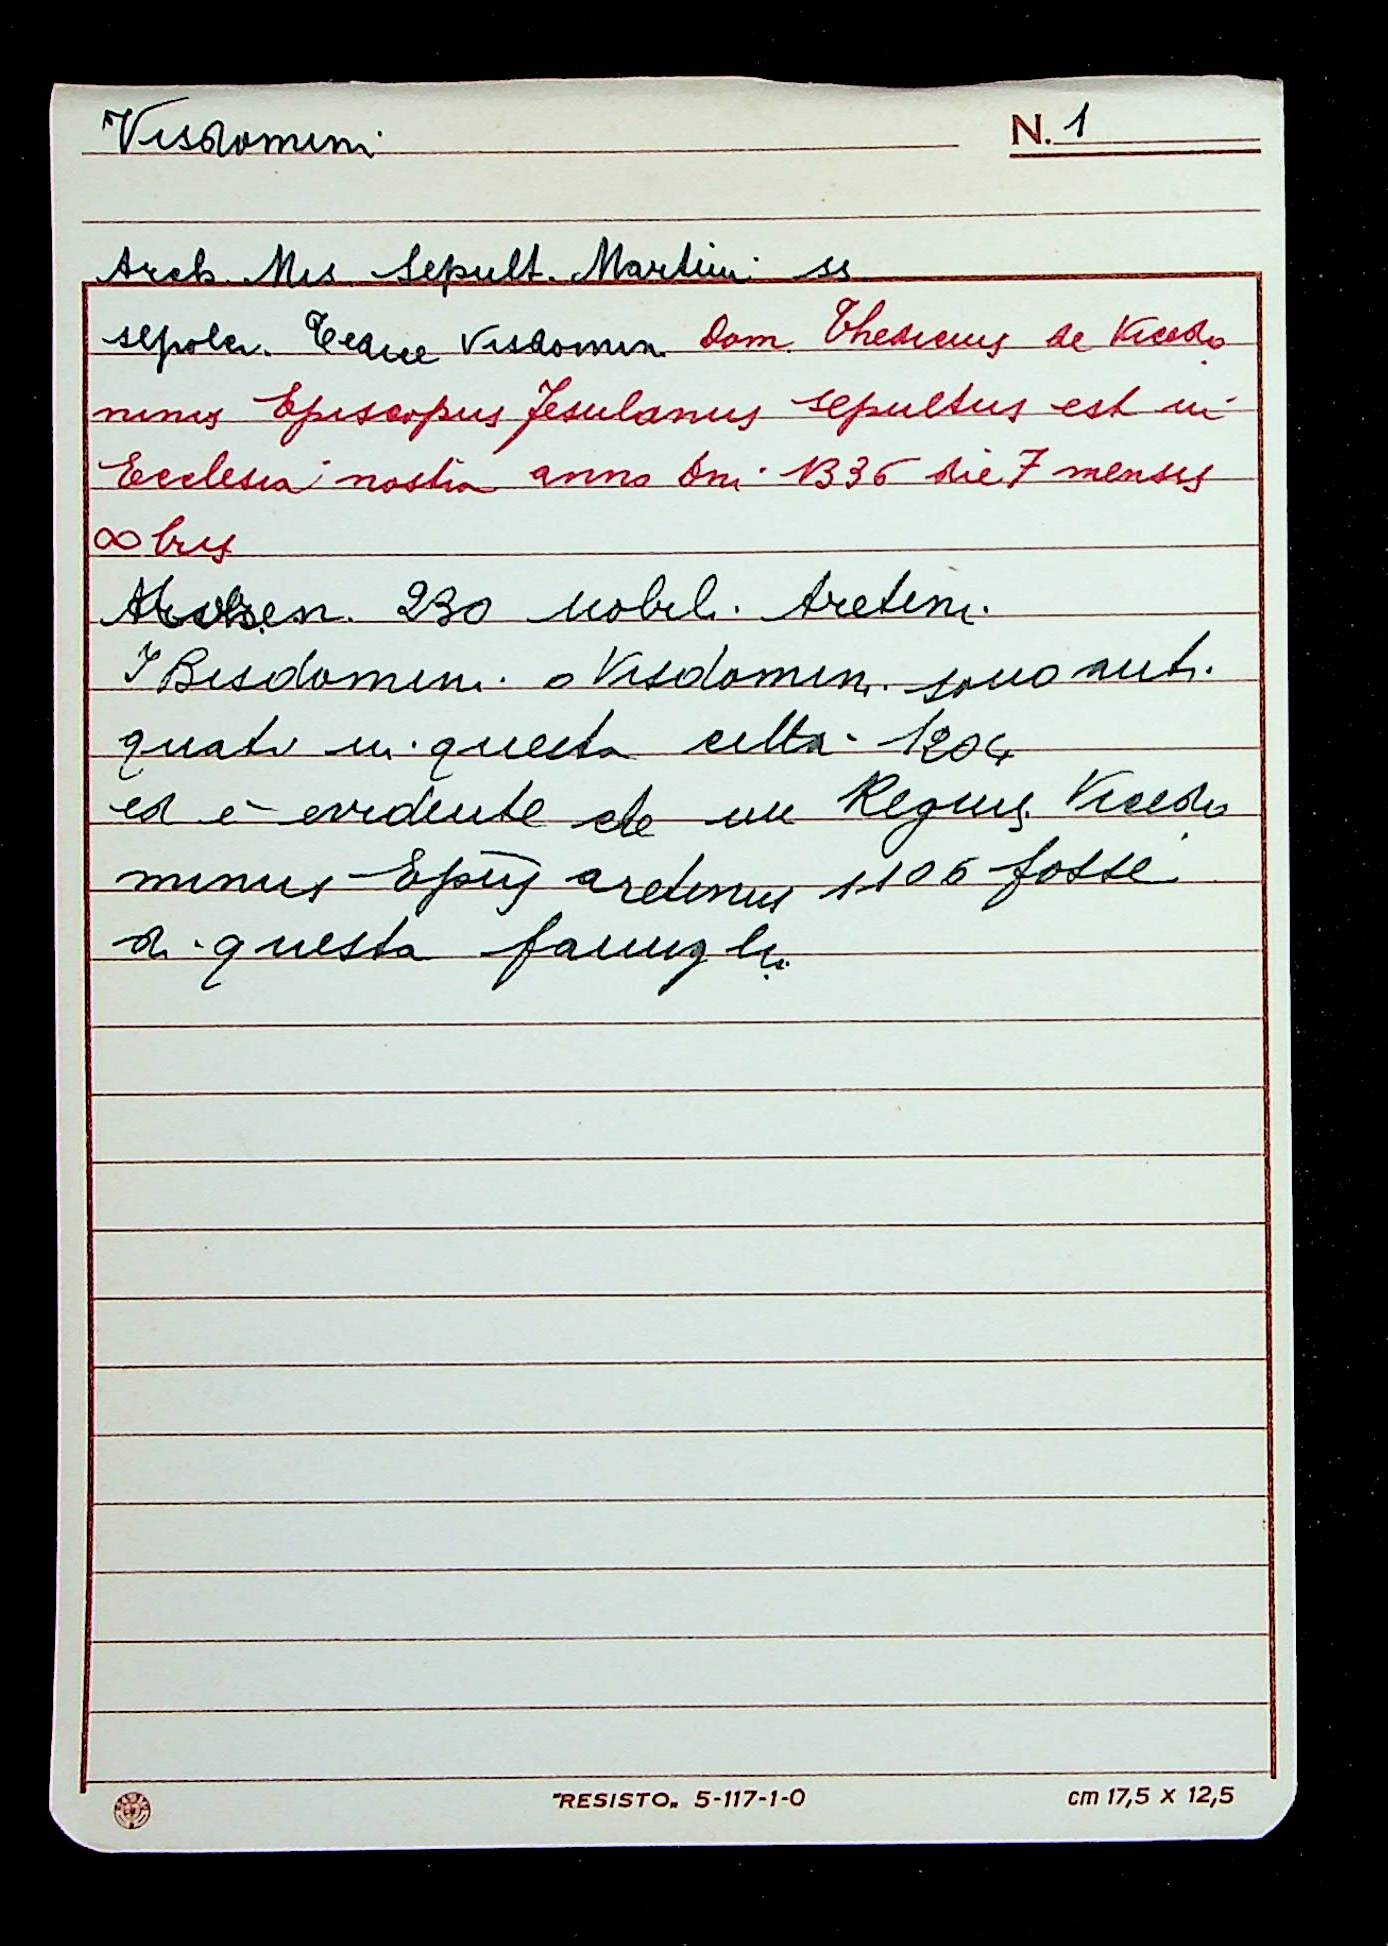 Visdomini N. 1
Arch. Mis. Sepult. Martini ss
sepolcr. Tedice Visdomin. Dom. Thedicus de Vicedo
minus Episcopus Fesulanus sepultus est in
Ecclesia nostra anno Dni 1336 die 7 mensis
∞bris
230 Nobil. Aretini.
I Bisdomini o Visdomini sono anti
quati in questa citta 1204
ed è evidente che un Regius Vicedo
minus Epūs aretinus 1106 fosse
di questa famiglia
"RESISTO„ 5-117-1-0 cm 17,5 x 12,5